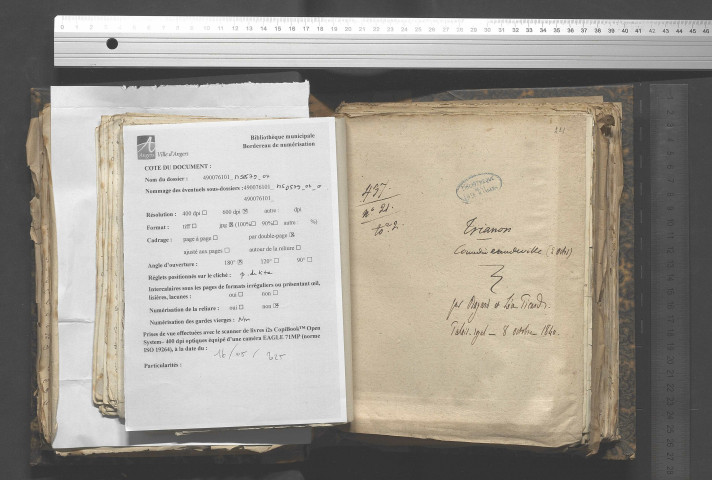 Bibliothèque municipale
Bordereau de numérisation
Angers
Ville d'Angers
COTE DU DOCUMENT :
Nom du dossier : 490076101_
Nommage des éventuels sous-dossiers : 490076101_
490076101_
Résolution : 400 dpi ☐ 600 dpi ☒ autre : dpi
Format : tiff ☐ jpg ☒ (100% ☐ 90% ☐ autre %)
Cadrage : page à page ☐ par double-page ☒
ajusté aux pages ☐ autour de la reliure ☐
Angle d'ouverture : 180° ☒ 120° ☐ 90° ☐
Réglets positionnés sur le cliché :
Intercalaires sous les pages de formats irréguliers ou présentant œil,
lisières, lacunes : oui ☐ non ☐
Numérisation de la reliure : oui ☐ non ☒
Numérisation des gardes vierges : Non
Prises de vue effectuées avec le scanner de livres i2s CopiBook™ Open
System– 400 dpi optiques équipé d'une caméra EAGLE 71MP (norme
ISO 19264), à la date du :
16/05/
Particularités :
437
n° 21.
to. 2.
Trianon
Comédie vaudeville
par Bayard et
Palais royal – 8 octobre 1840.